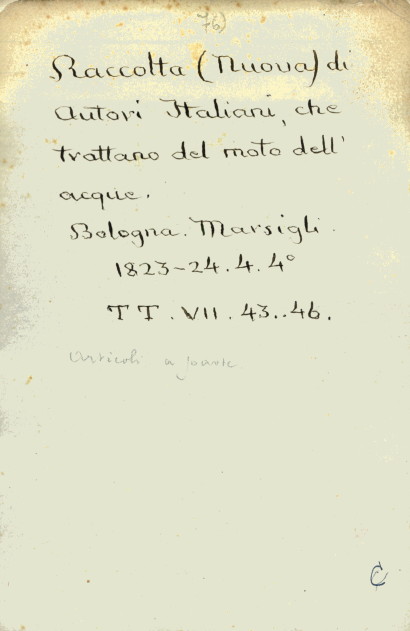 76)
Raccolta (Nuova) di
Autori Italiani, che
trattano del moto dell'
acque.
Bologna. Marsigli.
1823-24. 4. 4°
TT. VII. 43..46.
Articoli a
C